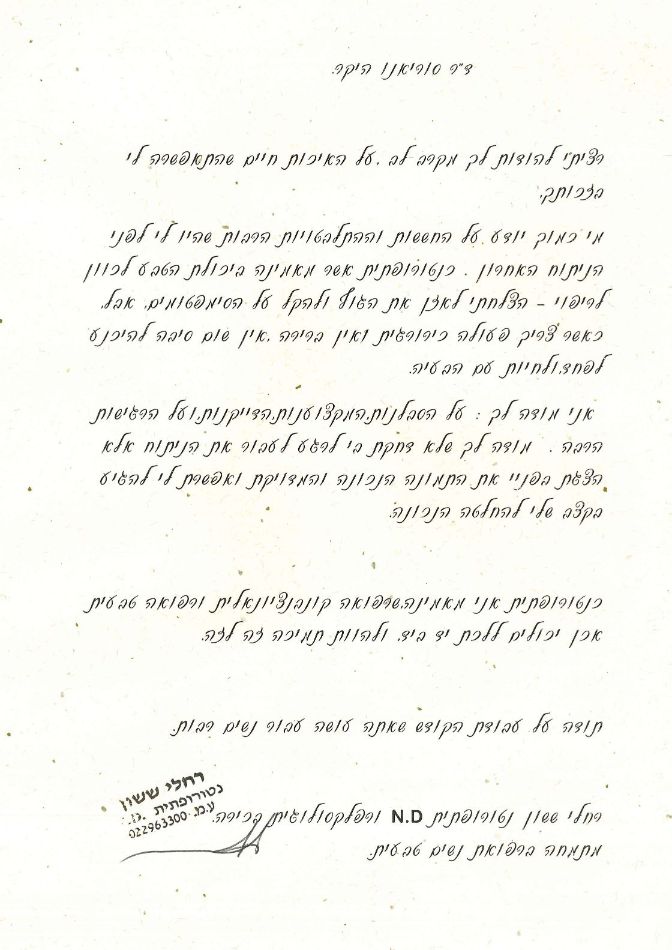 ד"ר סוריאנו היקר.
רציתי להודות לך מקרב לב , על האיכות חיים שהתאפשרה לי
בזכותך.
מי כמוך יודע על החששות וההתלבטויות הרבות שהיו לי לפני
הניתוח האחרון . כנטורופתית אשר מאמינה ביכולת הטבע לכוון
לריפוי - הצלחתי לאזן את הגוף ולהקל על הסימפטומים, אבל,
כאשר צריך פעולה כירורגית ואין ברירה ,אין שום סיבה להיכנע
לפחד,ולחיות עם הבעיה.
אני מודה לך : על הסבלנות,המקצוענות,הדייקנות,ועל הרגישות
הרבה . מודה לך שלא דחקת בי לרגע לעבור את הניתוח אלא
הצגת בפניי את התמונה הנכונה והמדויקת ואפשרת לי להגיע
בקצב שלי להחלטה הנכונה.
כנטורופתית אני מאמינה,שרפואה קונבנציונאלית ורפואה טבעית
אכן יכולים ללכת יד ביד, ולהוות תמיכה זה לזה.
תודה על עבודת הקודש שאתה עושה עבור נשים רבות.
רחלי ששון נטורופתית N.D ורפלקסולוגית בכירה.
מתמחה ברפואת נשים טבעית.
רחלי ששון
נטורופתית .N.D
ע.מ. 022963300